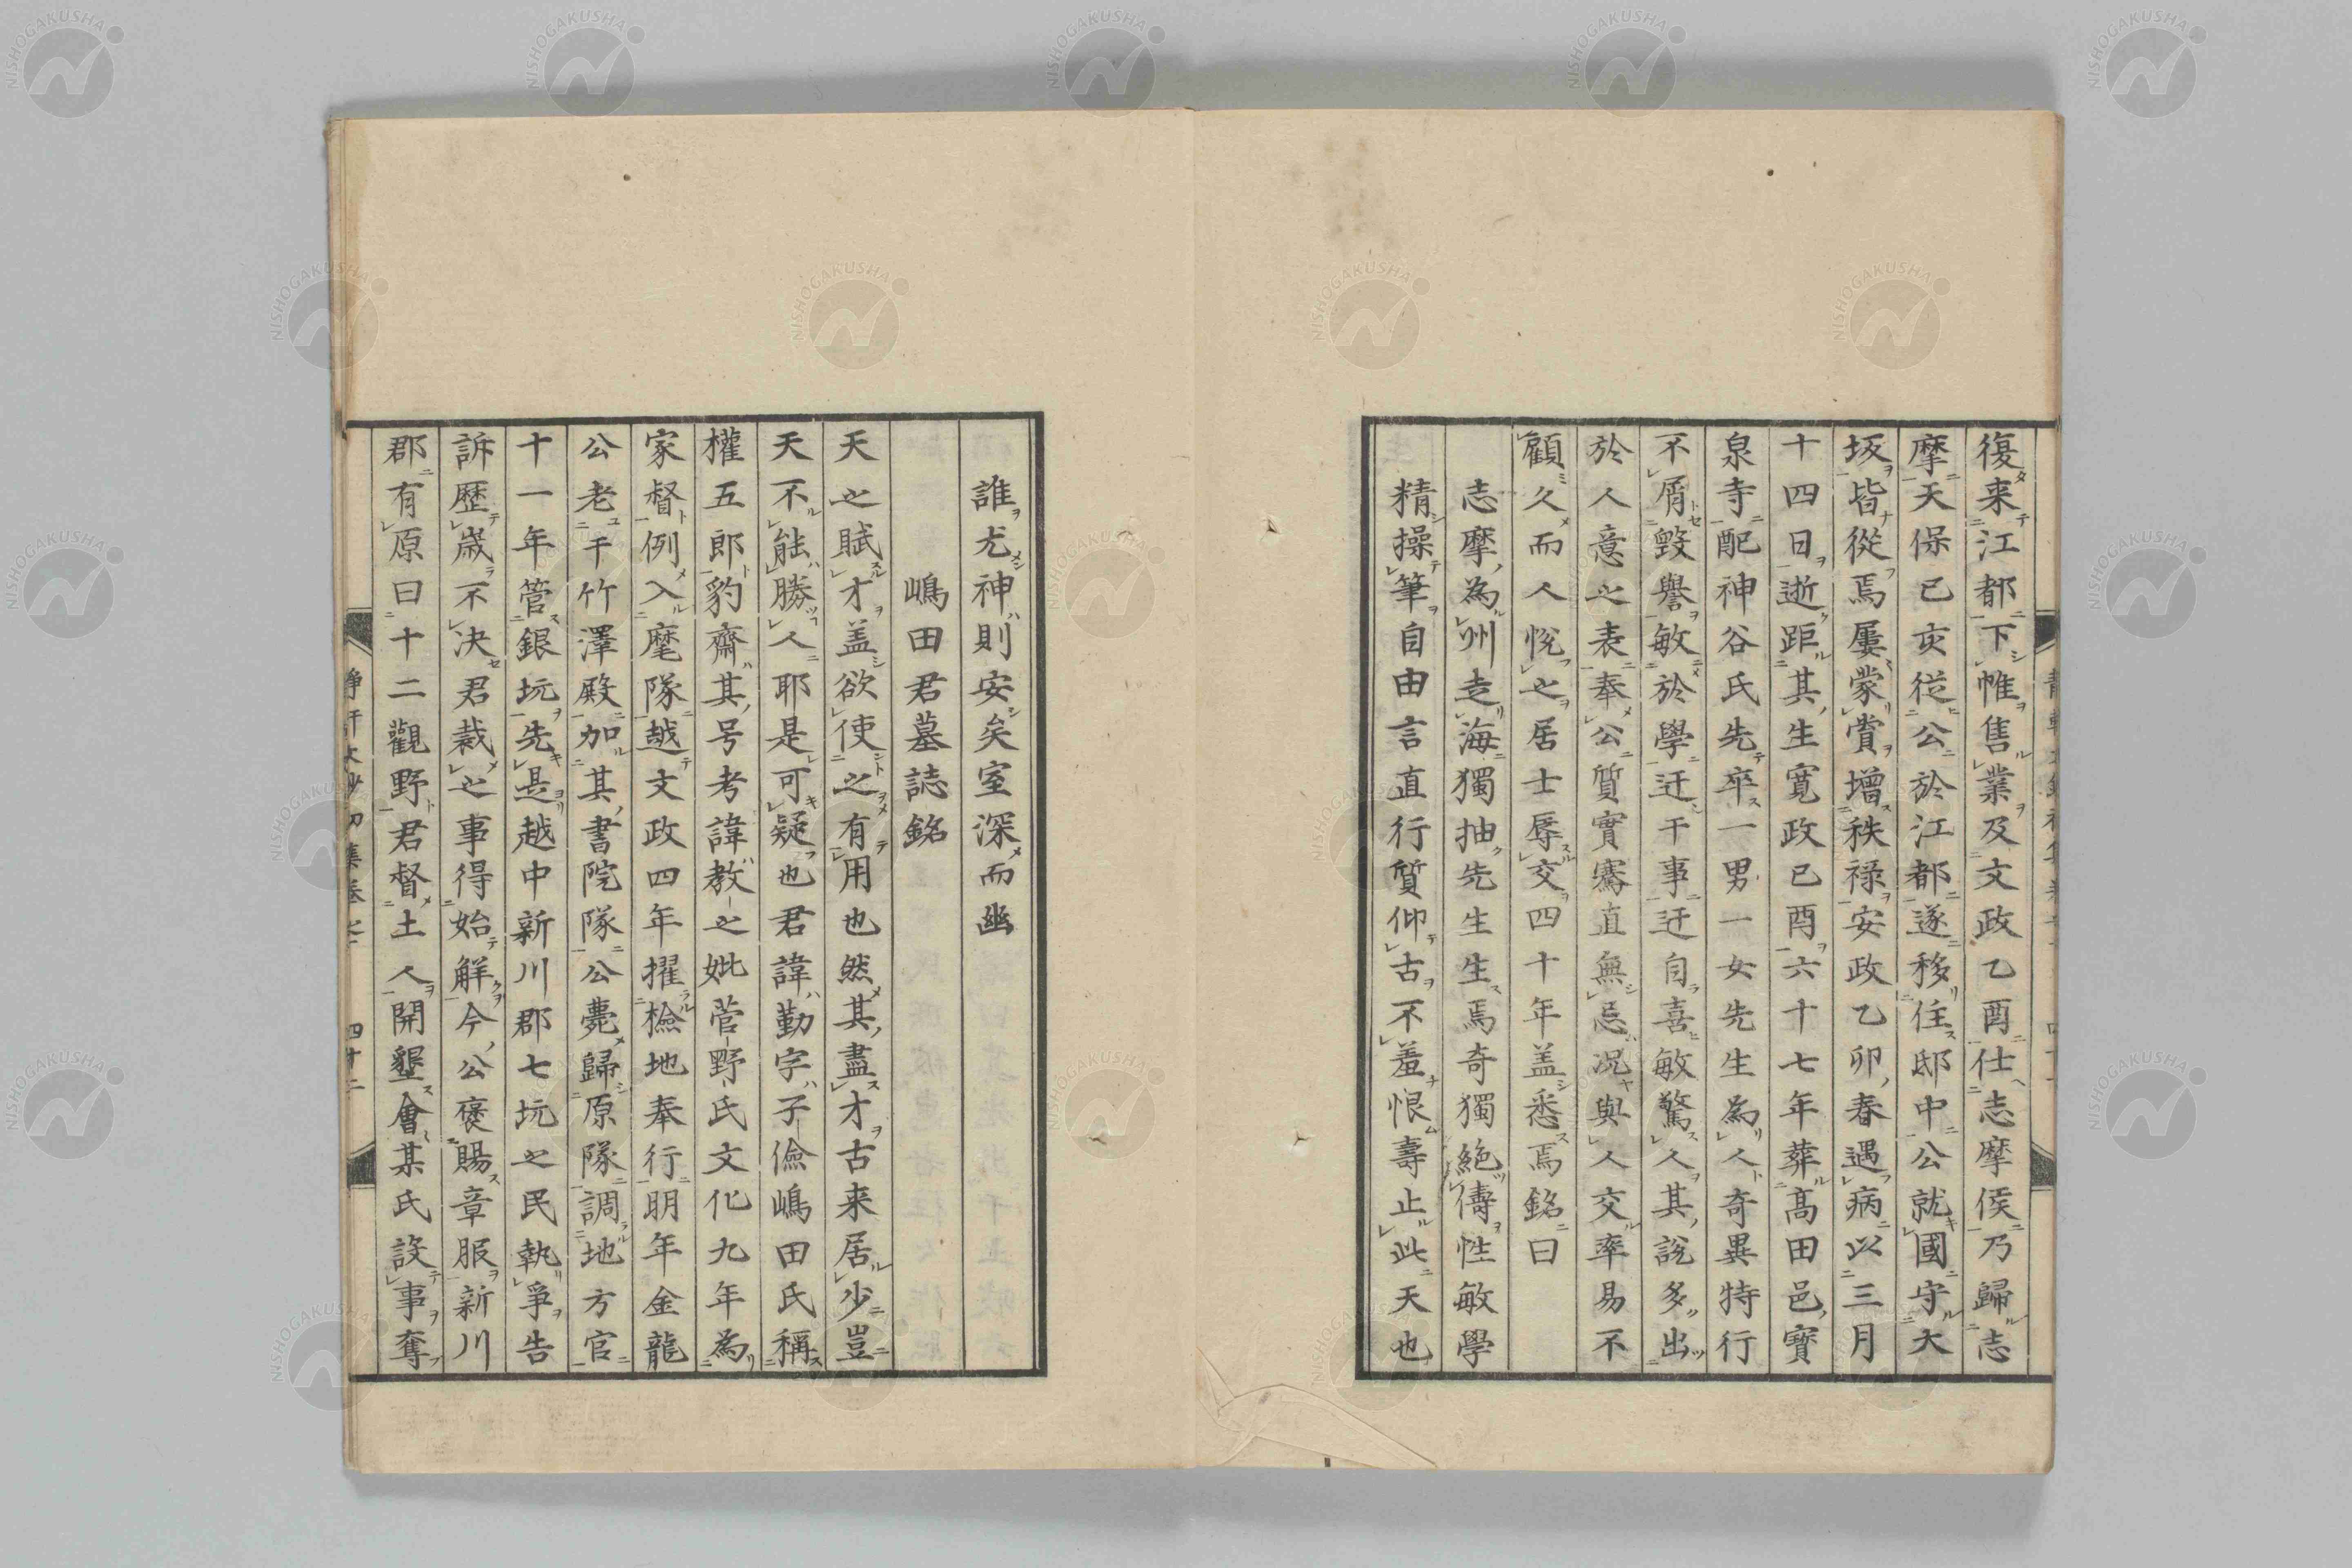 復来江都下帷售業及文政乙酉仕志摩侯乃歸志
摩天保已亥從公於江都遂移住邸中公就國守大
坂皆從焉屢蒙賞增秩禄安政乙卯春遇病以三月
十四日逝距其生寛政已酉六十七年葬髙田邑寳
泉寺配神谷氏先卒一男一女先生為人奇異特行
不屑毀譽敏於學迂干事迂自喜敏驚人其說多出
於人意之表奉公質實騫直無忌况與人交率易不
顧久而人悦之居士辱交四十年盖悉焉銘曰
志摩為州走海獨抽先生生焉奇獨絶儔性敏學
精操筆自由言直行質仰古不羞恨壽止此天也
誰尤神則安矣室深而幽
嶋田君墓誌銘
天之賦才盖欲使之有用也然其盡才古来居少豈
天不能勝人耶是可疑也君諱勤字子儉嶋田氏稱
權五郎豹齋其号考諱教之妣菅野氏文化九年為
家督例入麾隊越文政四年擢檢地奉行明年金龍
公老干竹澤殿加其書院隊公薨歸原隊調地方官
十一年管銀坑先是越中新川郡七坑之民執爭告
訴歴歳不决君裁之事得始解今公褒賜章服新川
郡有原曰十二觀野君督土人開墾會某氏設事奪
四十二
NISHOGAKUSHA